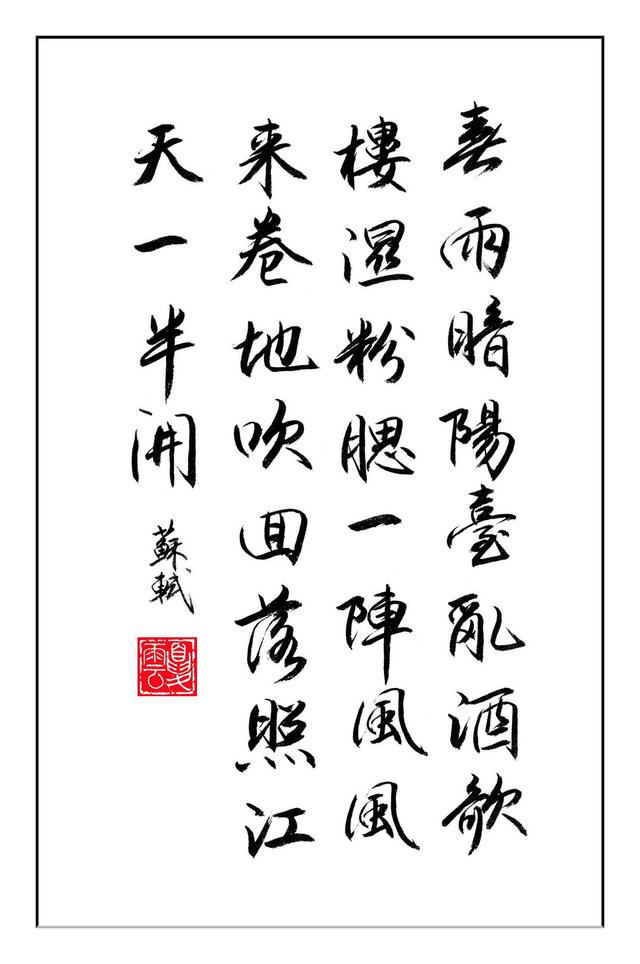 春雨暗陽臺亂酒歌
樓濕粉腮一陣風風
来卷地吹回落照江
天一半開
蘇軾
夏雲